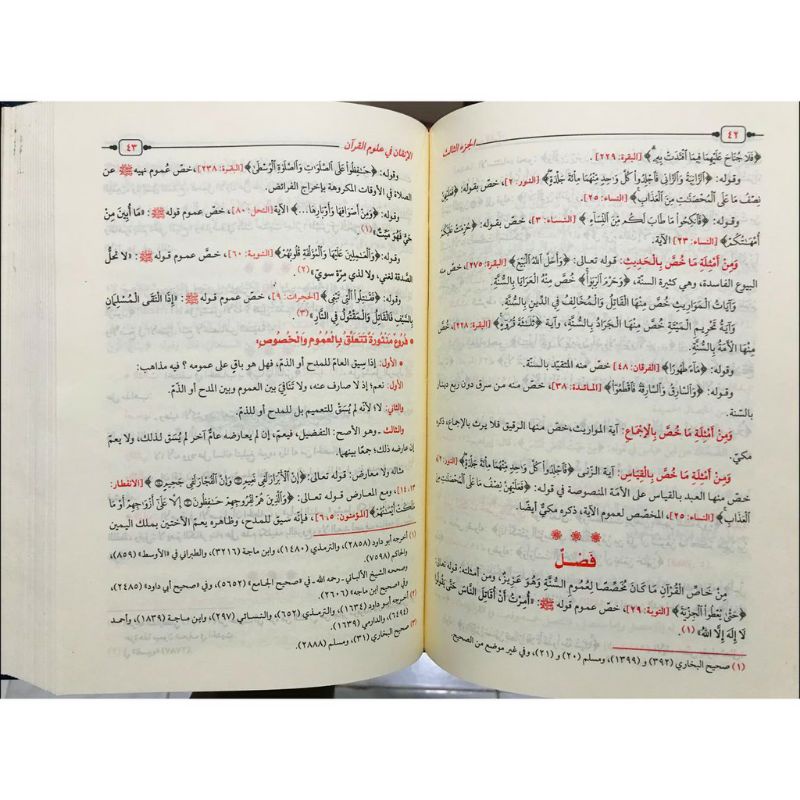 ٤٢
الجزء الثالث
﴿فَلَا جُنَاحَ عَلَيْهِمَا فِيمَا افْتَدَتْ بِهِ﴾ [البقرة: ٢٢٩].
وقوله: ﴿الزَّانِيَةُ وَالزَّانِي فَاجْلِدُوا كُلَّ وَاحِدٍ مِنْهُمَا مِائَةَ جَلْدَةٍ﴾ [النور: ٢]، خصّ بقوله: ﴿فَعَلَيْهِنَّ
نِصْفُ مَا عَلَى الْمُحْصَنَاتِ مِنَ الْعَذَابِ﴾ [النساء: ٢٥].
وقوله: ﴿فَانْكِحُوا مَا طَابَ لَكُمْ مِنَ النِّسَاءِ﴾ [النساء: ٣]، خصّ بقوله: ﴿حُرِّمَتْ عَلَيْكُمْ
أُمَّهَاتُكُمْ﴾ [النساء: ٢٣] الآية.
وَمِنْ أَمْثِلَةِ مَا خُصَّ بِالْحَدِيثِ: قوله تعالى: ﴿وَأَحَلَّ اللَّهُ الْبَيْعَ﴾ [البقرة: ٢٧٥]، خصّ منه
البيوع الفاسدة، وهي كثيرة السنّة، ﴿وَحَرَّمَ الرِّبَا﴾ خُصّ مِنْهُ الْعَرَايَا بِالسُّنَّةِ.
وَآيَاتُ الْمَوَارِيثِ خُصَّ مِنْهَا الْقَاتِلُ وَالْمُخَالِفُ فِي الدِّينِ بِالسُّنَّةِ.
وَآيَةُ تَحْرِيمِ الْمَيْتَةِ خُصَّ مِنْهَا الْجَرَادُ بِالسُّنَّةِ، وآية ﴿ثَلَاثَةَ قُرُوءٍ﴾ [البقرة: ٢٢٨]، خصّ
مِنْهَا الْأَمَةُ بِالسُّنَّةِ.
وقوله: ﴿مَاءً طَهُورًا﴾ [الفرقان: ٤٨] خصّ منه المتغيّر بالسنة.
وقوله: ﴿وَالسَّارِقُ وَالسَّارِقَةُ فَاقْطَعُوا﴾ [المائدة: ٣٨]، خصّ منه من سرق دون ربع دينار
بالسّنة.
وَمِنْ أَمْثِلَةِ مَا خُصَّ بِالْإِجْمَاعِ: آية المواريث، خصّ منها الرقيق فلا يرث بالإجماع، ذكره
مكيّ.
وَمِنْ أَمْثِلَةِ مَا خُصَّ بِالْقِيَاسِ: آية الزّنى ﴿فَاجْلِدُوا كُلَّ وَاحِدٍ مِنْهُمَا مِائَةَ جَلْدَةٍ﴾ [النور: ٢]
خصّ منها العبد بالقياس على الأمّة المنصوصة في قوله: ﴿فَعَلَيْهِنَّ نِصْفُ مَا عَلَى الْمُحْصَنَاتِ مِنَ
الْعَذَابِ﴾ [النساء: ٢٥]، المخصّص لعموم الآية، ذكره مكيّ أيضًا.
فَصْلٌ
مِنْ خَاصِّ الْقُرْآنِ مَا كَانَ مُخَصِّصًا لِعُمُومِ السُّنَّةِ وَهُوَ عَزِيزٌ، ومن أمثلته: قوله تعالى
﴿حَتَّى يُعْطُوا الْجِزْيَةَ﴾ [التوبة: ٢٩]، خصّ عموم قوله ﷺ: «أُمِرْتُ أَنْ أُقَاتِلَ النَّاسَ حَتَّى يَقُولُوا
لَا إِلَهَ إِلَّا اللَّهُ» (١)
(١) صحيح البخاري (٣٩٢) و (١٣٩٩)، ومسلم (٢٠) و (٢١)، وفي غير موضع من الصحيح.
الإتقان في علوم القرآن
٤٣
وقوله: ﴿حَافِظُوا عَلَى الصَّلَوَاتِ وَالصَّلَاةِ الْوُسْطَى﴾ [البقرة: ٢٣٨]، خصّ عموم نهيه ﷺ عن
الصلاة في الأوقات المكروهة بإخراج الفرائض.
وقوله: ﴿وَمِنْ أَصْوَافِهَا وَأَوْبَارِهَا...﴾ الآية [النحل: ٨٠]، خصّ عموم قوله ﷺ: «مَا أُبِينَ مِنْ
حَيٍّ فَهُوَ مَيِّتٌ» (١)
وقوله: ﴿وَالْعَامِلِينَ عَلَيْهَا وَالْمُؤَلَّفَةِ قُلُوبُهُمْ﴾ [التوبة: ٦٠]، خصَّ عموم قوله ﷺ: «لا تحلُّ
الصّدقة لغني، ولا لذي مِرّة سويّ» (٢)
وقوله: ﴿فَقَاتِلُوا الَّتِي تَبْغِي﴾ [الحجرات: ٩]، خصّ عموم قوله ﷺ: «إِذَا الْتَقَى الْمُسْلِمَانِ
بِالسَّيْفِ فَالْقَاتِلُ وَالْمَقْتُولُ فِي النَّارِ» (٣)
• فُرُوعٌ مَنْثُورَةٌ تَتَعَلَّقُ بِالْعُمُومِ وَالْخُصُوصِ:
• الأول: إذا سيق العامّ للمدح أو الذمّ، فهل هو باقٍ على عمومه؟ فيه مذاهب:
الأول: نعم؛ إذ لا صارف عنه، ولا تَنَافِيَ بين العموم وبين المدح أو الذمّ.
والثاني: لا؛ لأنه لم يُسَقْ للتعميم بل للمدح أو للذّم.
والثالث ـ وهو الأصح: التفصيل، فيعمّ، إن لم يعارضه عامٌ آخر لم يُسَقْ لذلك، ولا يعمّ
إن عارضه ذلك؛ جمعًا بينهما.
مثاله ولا معارض: قوله تعالى: ﴿إِنَّ الْأَبْرَارَ لَفِي نَعِيمٍ وَإِنَّ الْفُجَّارَ لَفِي جَحِيمٍ﴾ [الانفطار:
١٣، ١٤]، ومع المعارض قوله تعالى: ﴿وَالَّذِينَ هُمْ لِفُرُوجِهِمْ حَافِظُونَ إِلَّا عَلَى أَزْوَاجِهِمْ أَوْ مَا
مَلَكَتْ أَيْمَانُهُمْ﴾ [المؤمنون: ٥، ٦]، فإنّه سيق للمدح، وظاهره يعمّ الأختين بملك اليمين
(١) أخرجه أبو داود (٢٨٥٨)، والترمذي (١٤٨٠)، وابن ماجة (٣٢١٦)، والطبراني في «الأوسط» (٨٥٩)،
والحاكم (٧٥٩٨).
وصححه الشيخ الألباني ـ رحمه الله ـ في «صحيح الجامع» (٥٦٥٢)، وفي صحيح أبي داود» (٢٤٨٥)،
وفي صحيح ابن ماجه» (٢٦٠٦).
(٢) أخرجه أبو داود (١٦٣٤)، والترمذي (٦٥٢)، والنسائي (٢٩٧)، وابن ماجة (١٨٣٩)، وأحمد
(٦٤٩٤)، والدارمي (١٦٣٩).
(٣) صحيح البخاري (٣١)، ومسلم (٢٨٨٨).